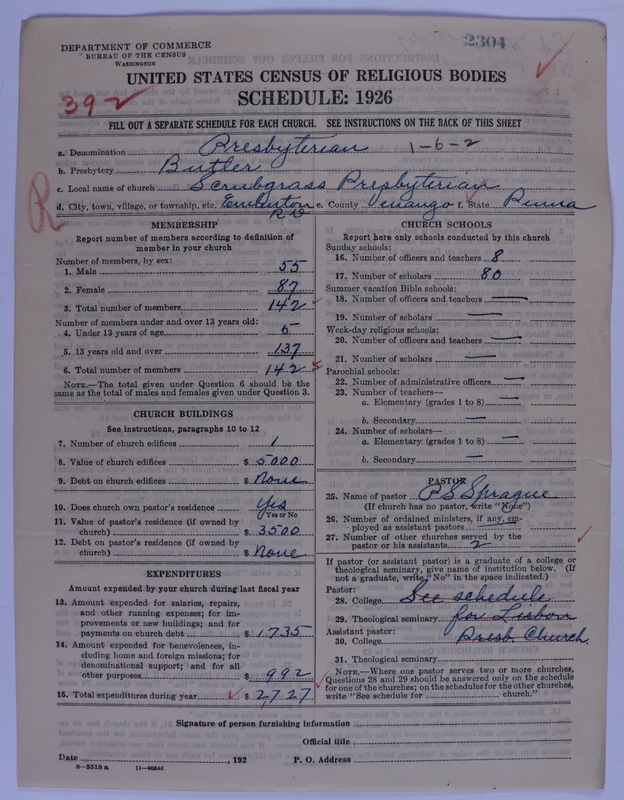 2304
DEPARTMENT OF COMMERCE
BUREAU OF THE CENSUS
WASHINGTON
UNITED STATES CENSUS OF RELIGIOUS BODIES
SCHEDULE: 1926
392
FILL OUT A SEPARATE SCHEDULE FOR EACH CHURCH. SEE INSTRUCTIONS ON THE BACK OF THIS SHEET
a. Denomination Presbyterian 1-6-2
b. Presbytery Butler
c. Local name of church Scrubgrass Presbyterian
d. City, town, village, or township, etc. Emlenton e. County Venango f. State Penna
R D
R
MEMBERSHIP
Report number of members according to definition of
member in your church
Number of members, by sex:
1. Male 55
2. Female 87
3. Total number of members 142
Number of members under and over 13 years old:
4. Under 13 years of age 5
5. 13 years old and over 137
6. Total number of members 142
NOTE.—The total given under Question 6 should be the
same as the total of males and females given under Question 3.
CHURCH BUILDINGS
See instructions, paragraphs 10 to 12
7. Number of church edifices 1
8. Value of church edifices $ 5000
9. Debt on church edifices $ None
10. Does church own pastor's residence Yes
Yes or No
11. Value of pastor's residence (if owned by
church) $ 3500
12. Debt on pastor's residence (if owned by
church) $ None
EXPENDITURES
Amount expended by your church during last fiscal year
13. Amount expended for salaries, repairs,
and other running expenses; for im-
provements or new buildings; and for
payments on church debt $ 1735
14. Amount expended for benevolences, in-
cluding home and foreign missions; for
denominational support; and for all
other purposes $ 992
15. Total expenditures during year $ 2727
CHURCH SCHOOLS
Report here only schools conducted by this church
Sunday schools:
16. Number of officers and teachers 8
17. Number of scholars 80
Summer vacation Bible schools:
18. Number of officers and teachers —
19. Number of scholars —
Week-day religious schools:
20. Number of officers and teachers —
21. Number of scholars —
Parochial schools:
22. Number of administrative officers —
23. Number of teachers—
a. Elementary (grades 1 to 8) —
b. Secondary —
24. Number of scholars—
a. Elementary (grades 1 to 8) —
b. Secondary —
PASTOR
25. Name of pastor P S Sprague
(If church has no pastor, write "None")
26. Number of ordained ministers, if any, em-
ployed as assistant pastors
27. Number of other churches served by the
pastor or his assistants 2
If pastor (or assistant pastor) is a graduate of a college or
theological seminary, give name of institution below. (If
not a graduate, write "No" in the space indicated.)
Pastor:
28. College See schedule
29. Theological seminary for Lisbon
Assistant pastor:
30. College Presb Church.
31. Theological seminary
NOTE.—Where one pastor serves two or more churches,
Questions 28 and 29 should be answered only on the schedule
for one of the churches; on the schedules for the other churches,
write "See schedule for church."
Signature of person furnishing information
Official title
Date , 192 P. O. Address
8—5518 a 11—